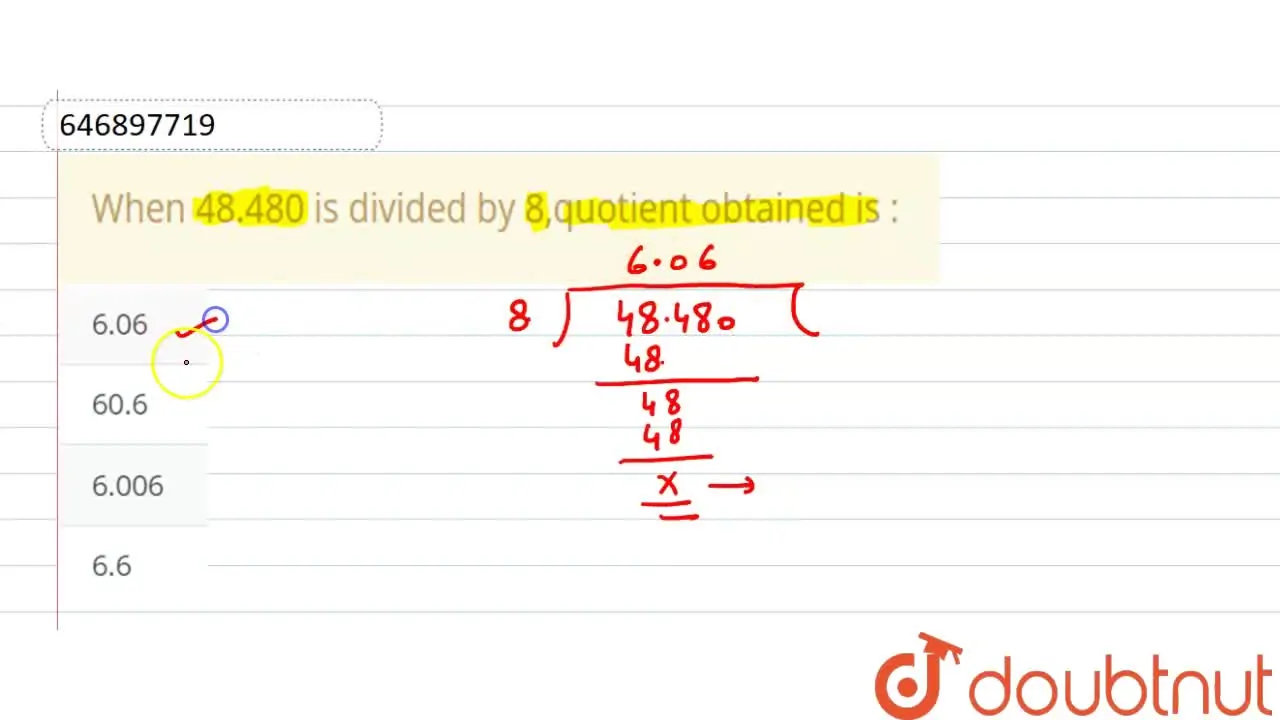 646897719
When 48.480 is divided by 8,quotient obtained is :
6.06
6.06
8 ) 48.480 (
48.
48
48
x →
60.6
6.006
6.6
doubtnut